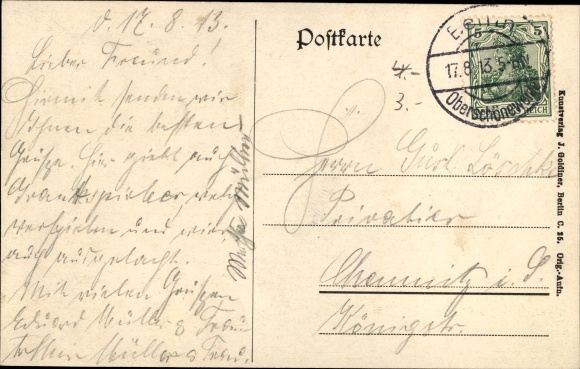 d. 17.8.13.
Lieber Freund!
Hiermit senden wir
Ihnen die besten
Grüße. Hier giebt auch
und wir
auch ausgelacht.
Mit vielen Grüßen
Eduard Müller & Frau
Müller & Frau.
Postkarte
4.-
3.-
17.8.13. 5-6N.
Oberschöneweide
5 5
REICH
Herrn Gust. Löschke
Privatier
Chemnitz i. S.
Königstr.
Kunstverlag J. Goldiner, Berlin C. 25. Orig.-Aufn.